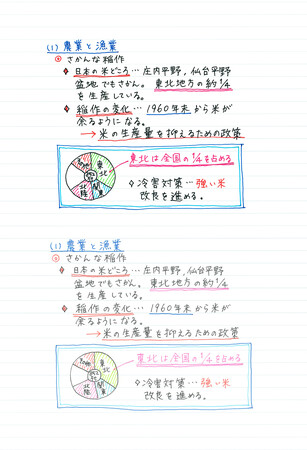 (1) 農業と漁業
◎ さかんな稲作
♦ 日本の米どころ…庄内平野, 仙台平野
盆地でもさかん。東北地方の約1/4
を生産している。
♦ 稲作の変化…1960年末から米が
余るようになる。
→ 米の生産量を抑えるための政策
東北は全国の1/4を占める
東北
関東
北陸
◇冷害対策…強い米
改良を進める。
(1) 農業と漁業
◎ さかんな稲作
♦ 日本の米どころ…庄内平野, 仙台平野
盆地でもさかん。東北地方の約1/4
を生産している。
♦ 稲作の変化…1960年末から米が
余るようになる。
→ 米の生産量を抑えるための政策
東北は全国の1/4を占める
東北
関東
北陸
◇冷害対策…強い米
改良を進める。